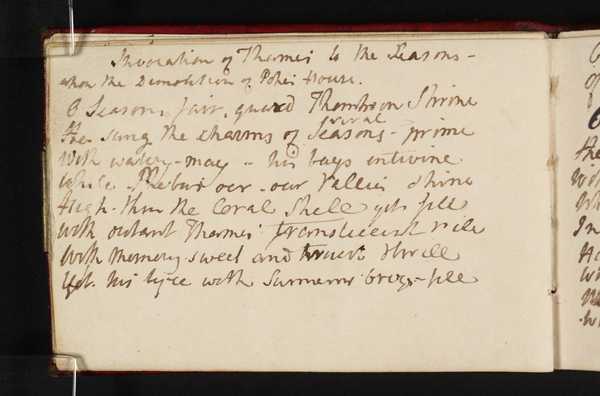 Invocation of Thames to the Seasons -
upon the Demolition of Popes House.
O Seasons fair, guard Thomson Shrine
He sung the charms of Seasons - prime
vernal
With watery - may - his bays intwine
While Phebus oer - our Vallies shine
the Coral Shell yet fill
With Thames translucent rile
With Memory sweet and thrill
Yet his lyre with Summers - fill
O
of
O
the
In